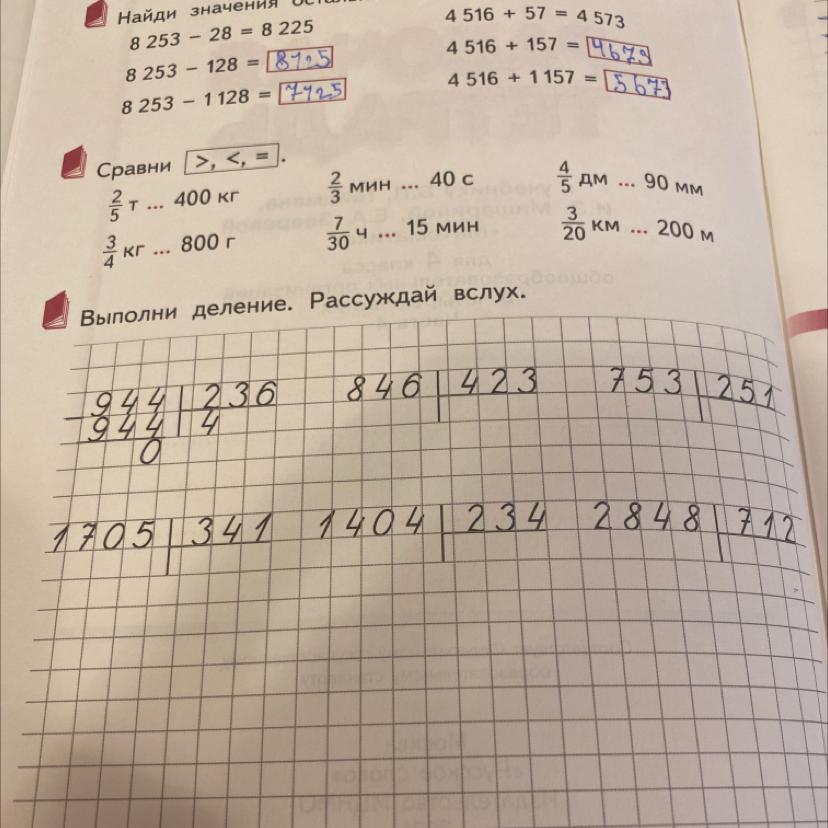 Найди значения
8 253 − 28 = 8 225
8 253 − 128 = 8125
8 253 − 1 128 = 7125
4 516 + 57 = 4 573
4 516 + 157 = 4673
4 516 + 1 157 = 5673
Сравни >, <, = .
2/5 т ... 400 кг
2/3 мин ... 40 с
4/5 дм ... 90 мм
3/4 кг ... 800 г
7/30 ч ... 15 мин
3/20 км ... 200 м
Выполни деление. Рассуждай вслух.
944 | 236
− 944 | 4
0
846 | 423
753 | 251
1705 | 341
1404 | 234
2848 | 712